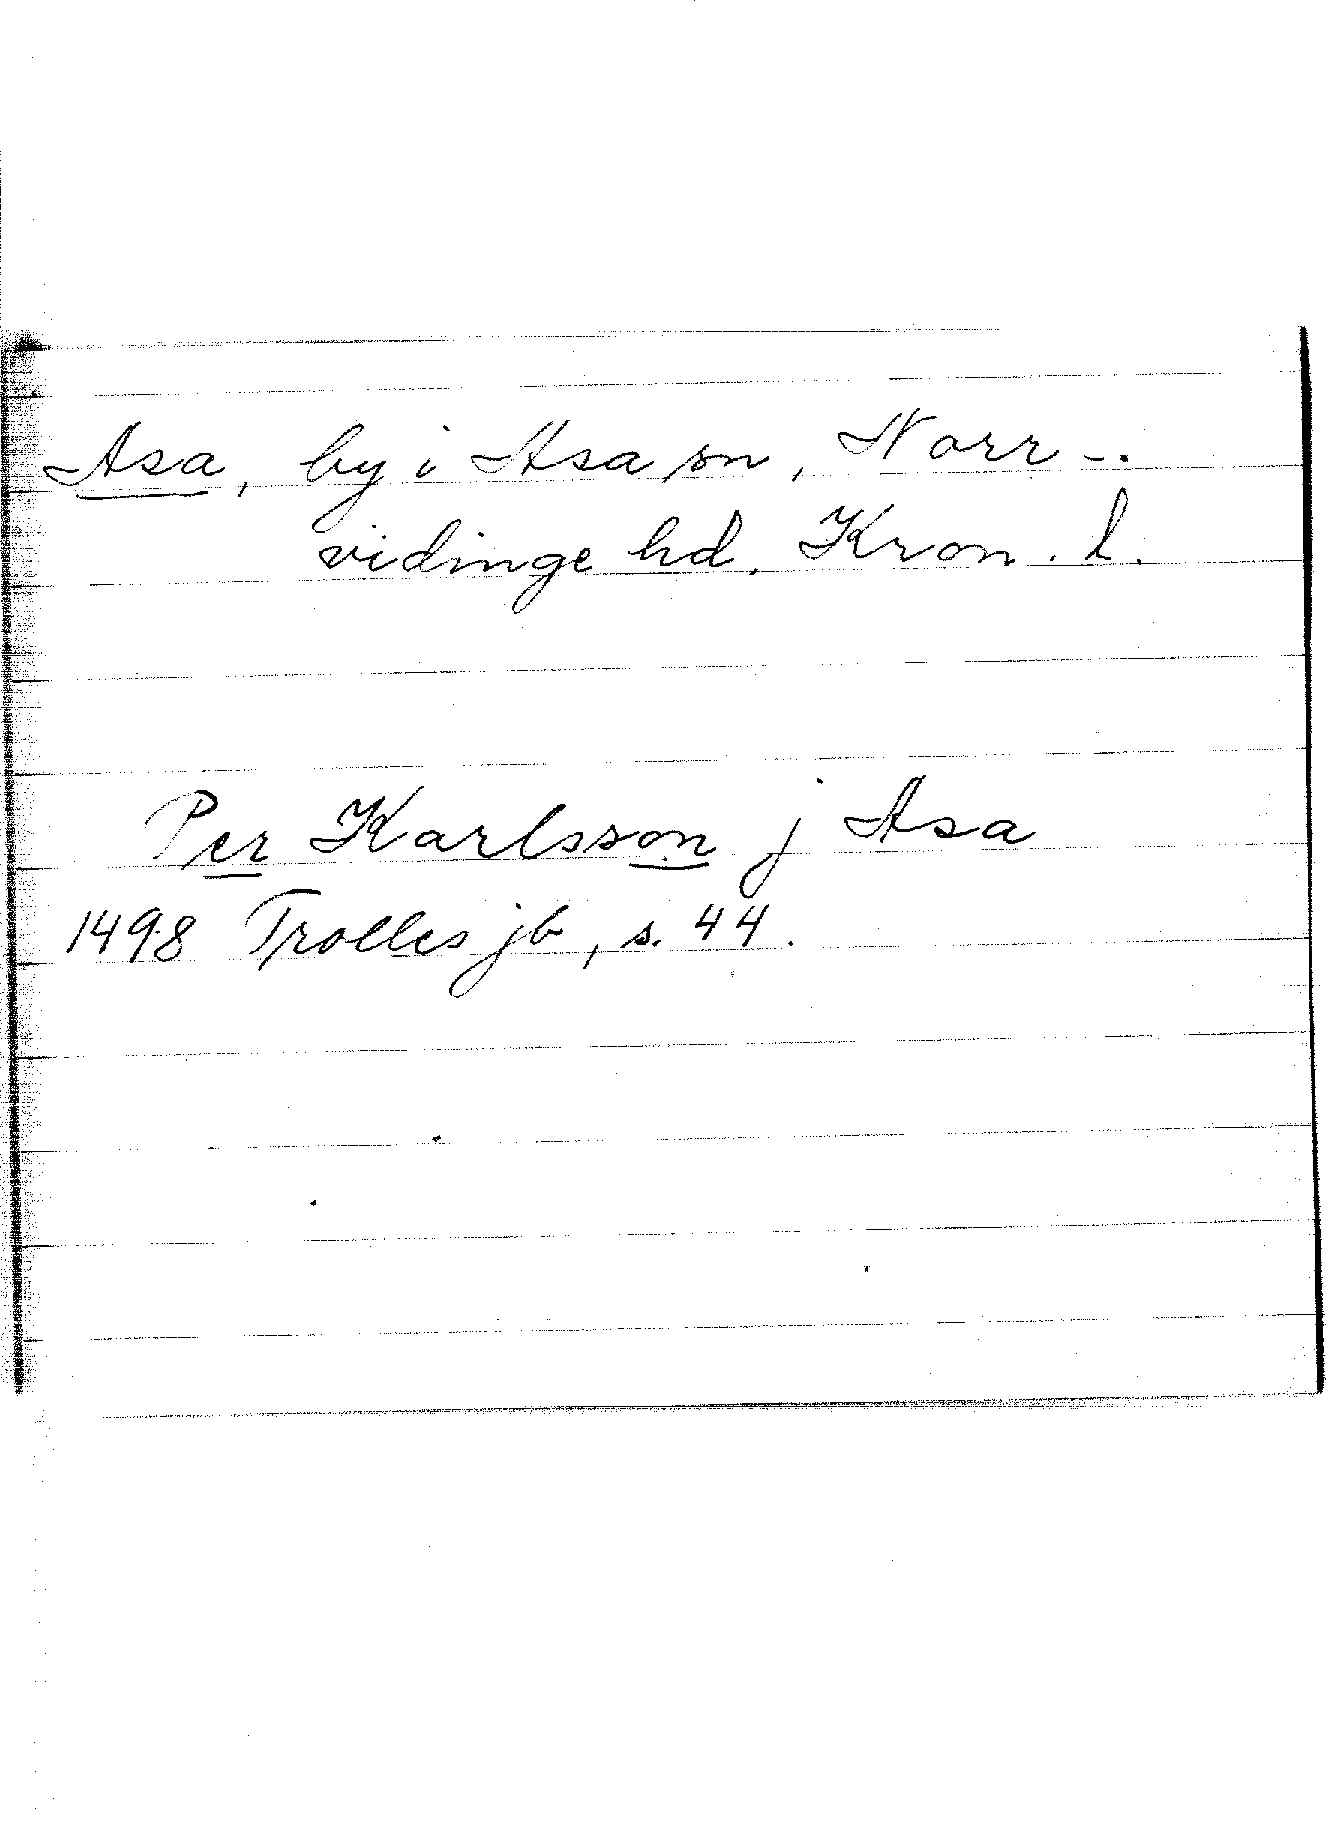 Asa, by i Asa sn, Norr-
vidinge hd. Kron. l.
Per Karlsson j Asa
1498 Trolles jb, s. 44.